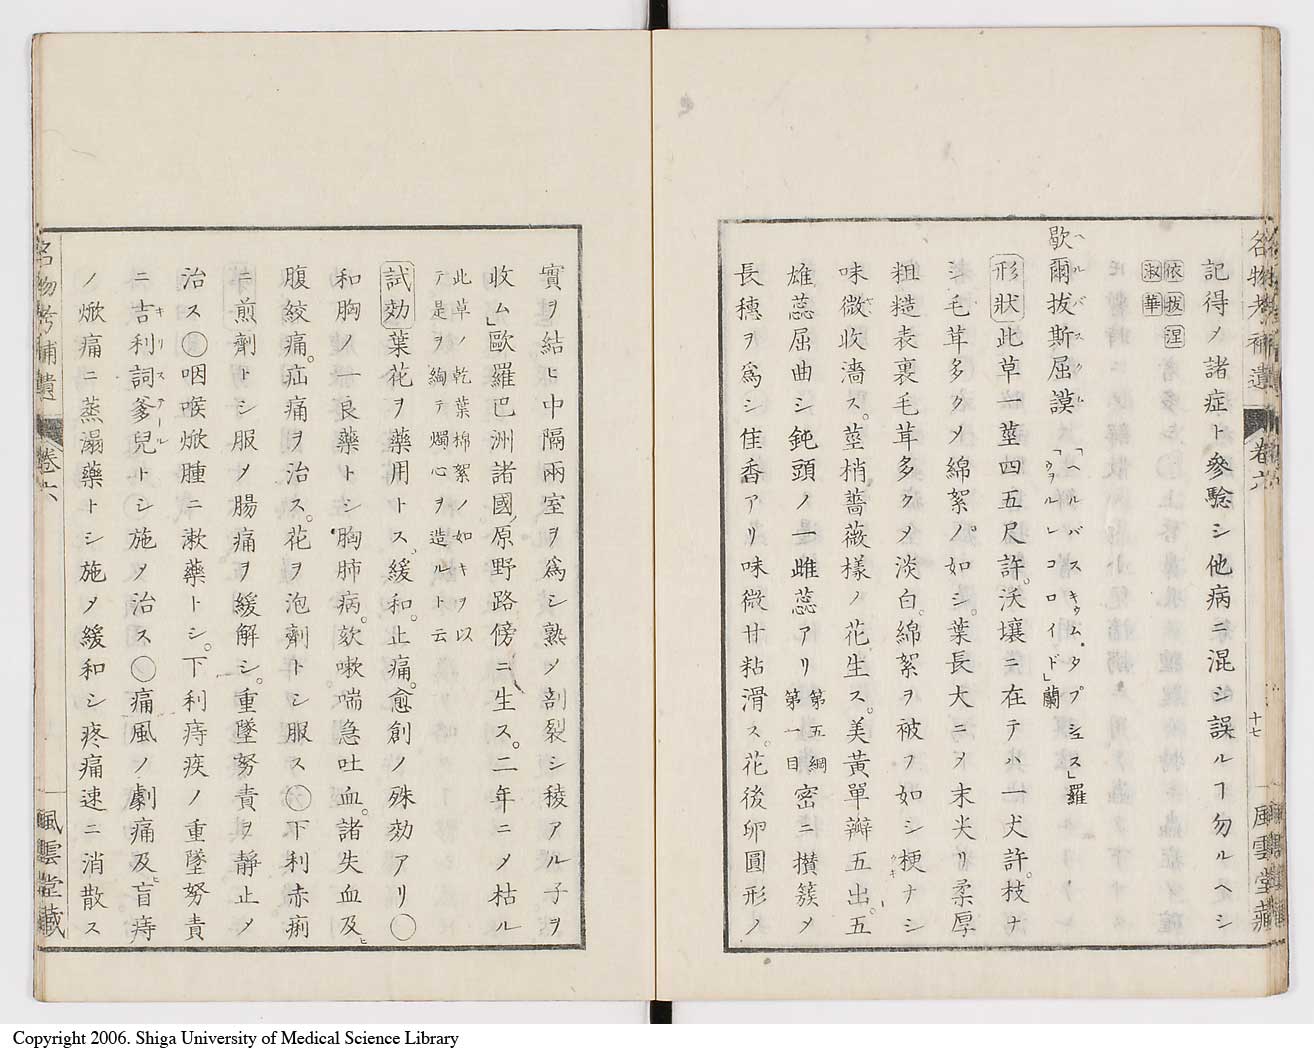 名物考補遺 卷六 十七 風雲堂藏
記得〆諸症ト參驗シ他病ニ混シ誤ルヿ勿ルヘシ
依拔涅
淑華
歇爾拔斯屈謨「ヘルバスキゥム・タプシュス」羅
ヘルバスクム
「ウヲルレコロイド」蘭
形狀此草一莖四五尺許。沃壤ニ在テハ一丈許。枝ナ
シ毛茸多ク〆綿絮ノ如シ。葉長大ニ〆末尖リ柔厚
粗糙表裏毛茸多ク〆淡白。綿絮ヲ被フ如シ梗ナシ
味微收濇ス。莖梢薔薇樣ノ花生ス。美黃單瓣五出。五
雄蕊屈曲シ鈍頭ノ一雌蕊アリ第五綱第一目密ニ攅簇〆
長穗ヲ爲シ佳香アリ味微甘粘滑ス。花後卵圓形ノ
實ヲ結ヒ中隔兩室ヲ爲シ熟〆剖裂シ稜アル子ヲ
收ム」歐羅巴洲諸國原野路傍ニ生ス。二年ニ〆枯ル
此草ノ乾葉綿絮ノ如キヲ以
テ是ヲ綯テ燭心ヲ造ルト云
試効葉花ヲ藥用トス、緩和。止痛。愈創ノ殊効アリ〇
和胸ノ一良藥トシ胸肺病。欬嗽喘急吐血。諸失血及ヒ
腹絞痛。疝痛ヲ治ス。花ヲ泡劑トシ服ス〇下利赤痢
ニ煎劑トシ服〆腸痛ヲ緩解シ。重墜努責ヲ靜止〆
治ス〇咽喉焮腫ニ漱藥トシ。下利痔疾ノ重墜努責
ニ吉利詞爹兒トシ施〆治ス〇痛風ノ劇痛及ヒ盲痔
キリステール
ノ焮痛ニ蒸溻藥トシ施〆緩和シ疼痛速ニ消散ス
名物考補遺 卷六 風雲堂藏
Copyright 2006. Shiga University of Medical Science Library